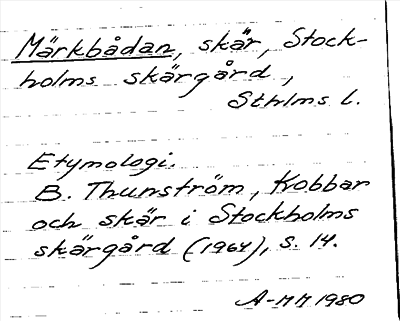 Märkbådan, skär, Stock-
holms skärgård,
Sthlms l.
Etymologi.
B. Thunström, Kobbar
och skär i Stockholms
skärgård (1964), s. 14.
A-MM 1980